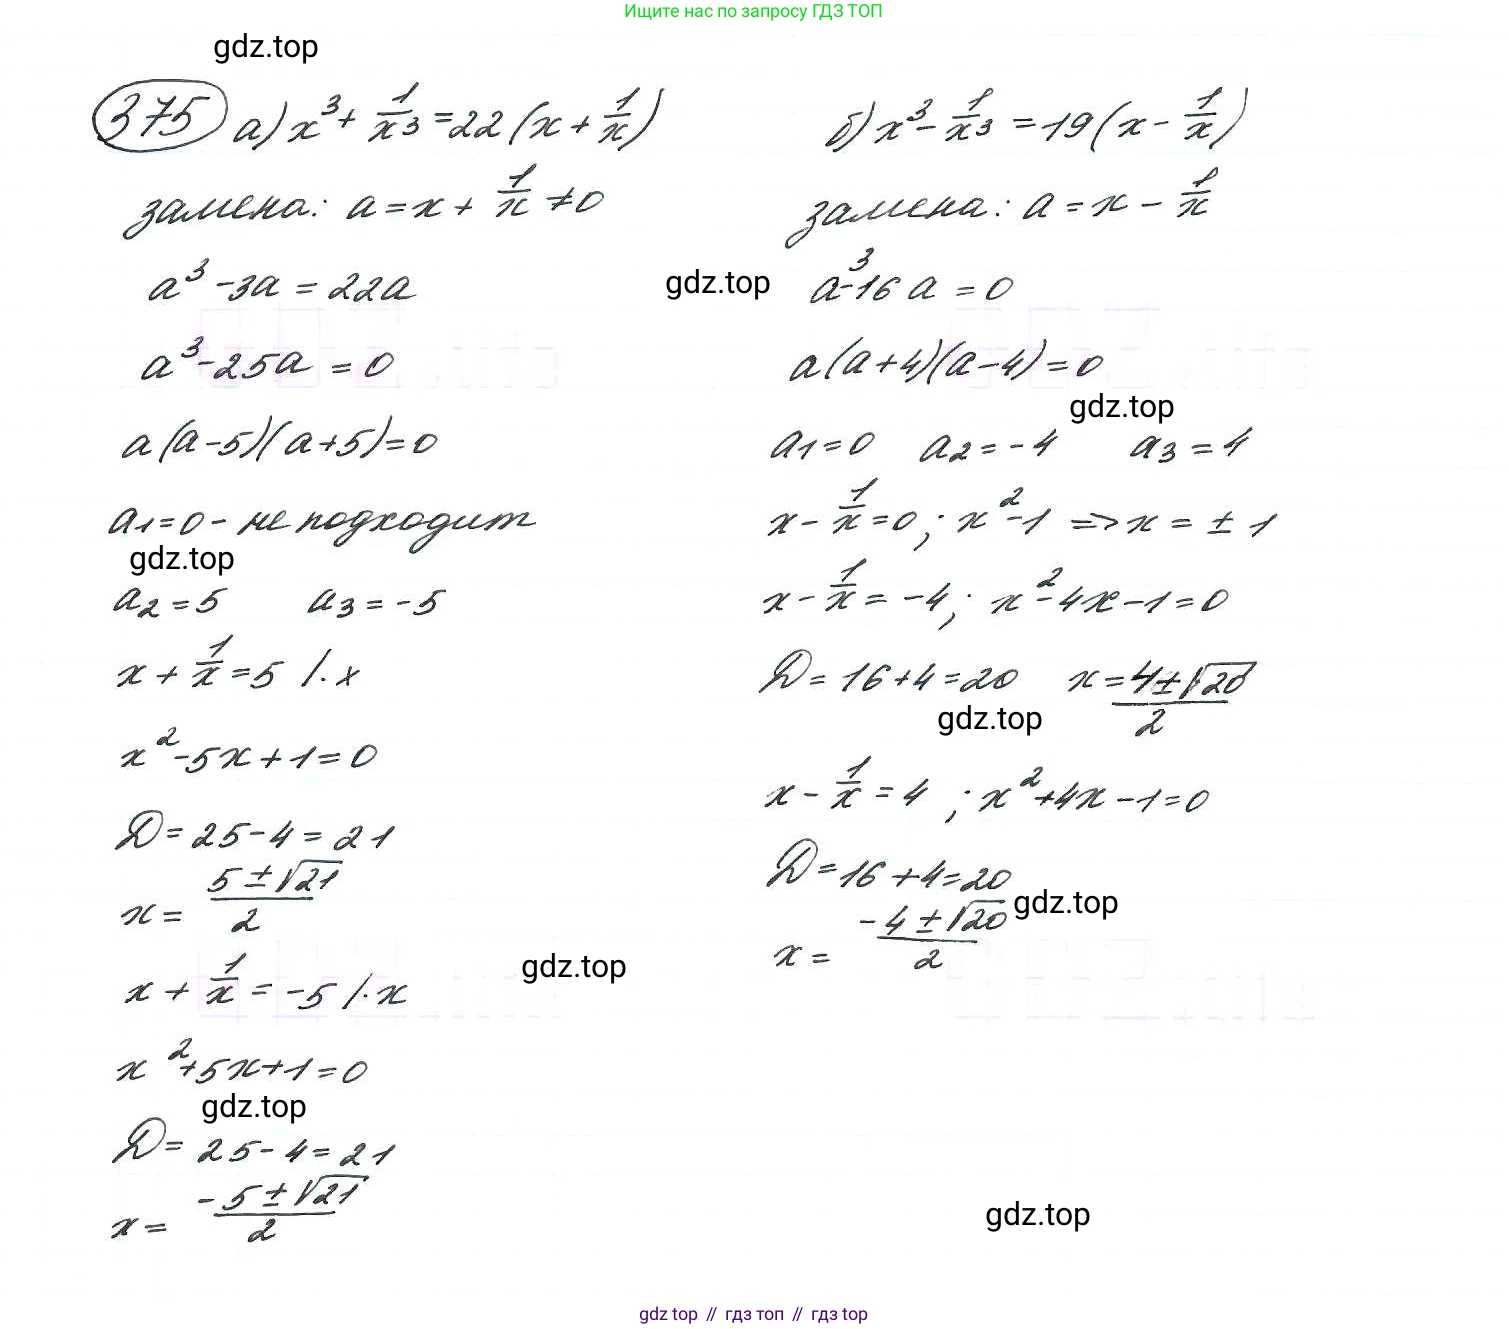 Ищите нас по запросу ГДЗ ТОП
gdz.top
375 а) x³ + 1/x³ = 22 (x + 1/x)
замена: a = x + 1/x ≠ 0
a³ - 3a = 22a
a³ - 25a = 0
a (a - 5)(a + 5) = 0
a₁ = 0 - не подходит
gdz.top
a₂ = 5 a₃ = -5
x + 1/x = 5 /· x
x² - 5x + 1 = 0
D = 25 - 4 = 21
x = (5 ± √21)/2
x + 1/x = -5 /· x
x² + 5x + 1 = 0
gdz.top
D = 25 - 4 = 21
x = (-5 ± √21)/2
б) x³ - 1/x³ = 19 (x - 1/x)
замена: a = x - 1/x
gdz.top
a³ - 16a = 0
a (a + 4)(a - 4) = 0
gdz.top
a₁ = 0 a₂ = -4 a₃ = 4
x - 1/x = 0 ; x² - 1 => x = ± 1
x - 1/x = -4 ; x² - 4x - 1 = 0
D = 16 + 4 = 20 x = (4 ± √20)/2
gdz.top
x - 1/x = 4 ; x² + 4x - 1 = 0
D = 16 + 4 = 20
gdz.top
x = (-4 ± √20)/2
gdz.top
gdz.top
gdz top // гдз топ // гдз top